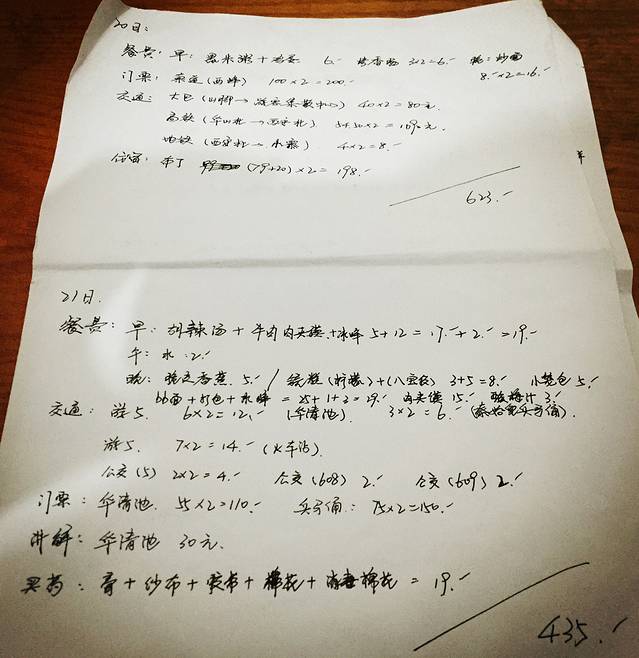 20日:
餐费: 早: 黑米粥+鸡蛋 6.- 烤香肠 3×2=6.- 晚: 炒面 8.-×2=16.-
门票: 索道(西峰) 100×2=200.-
交通: 大巴(山脚→游客集散中心) 40×2=80元.
高铁(华山北→西安北) 54.50×2=109元.
地铁(西安北→) 4×2=8.-
住宿: 布丁 (79+20)×2=198.-
623.-
21日.
餐费: 早: 胡辣汤+牛肉肉夹馍+冰峰 5+12=17.-+2.-=19.-
午: 水: 2.-
晚: 香蕉. 5.-/ (柠檬)+(八宝) 3+5=8.- 小笼包 5.-
面+ +冰峰=25+1+3=29.- 肉夹馍 15.- 酸梅汁 3.-
交通: 游5. 6×2=12.-(华清池). 3×2=6.-(秦始皇兵马俑).
游5. 7×2=14.-(火车站)
公交(5) 2×2=4.- 公交(608) 2.- 公交(609) 2.-
门票: 华清池. 55×2=110.- 兵马俑: 75×2=150.-
讲解: 华清池 30元.
买药: 膏+纱布+胶布+棉花+消毒棉花=19.-
435.-